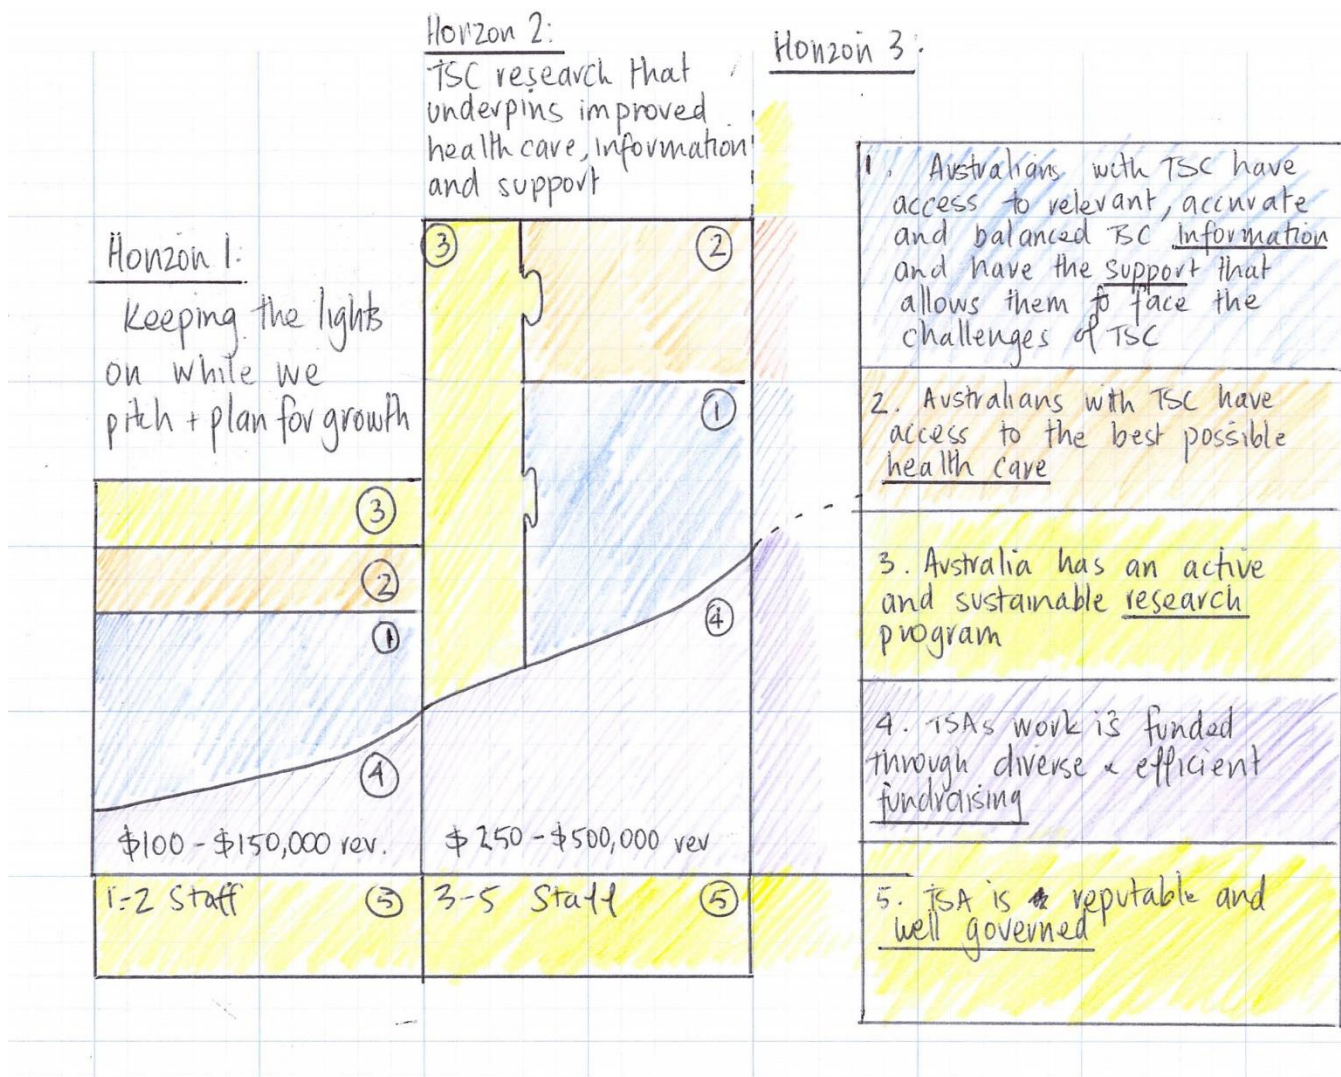 Horizon 1:
Keeping the lights
on while we
pitch + plan for growth
③
②
①
④
$100 - $150,000 rev.
1-2 Staff ⑤
Horzon 2:
TSC research that
underpins improved
health care, information
and support
③ ②
①
④
$250 - $500,000 rev
3-5 Staff ⑤
Horizon 3:
1. Australians with TSC have
access to relevant, accurate
and balanced TSC information
and have the support that
allows them to face the
challenges of TSC
2. Australians with TSC have
access to the best possible
health care
3. Australia has an active
and sustainable research
program
4. TSAs work is funded
through diverse & efficient
fundraising
5. TSA is reputable and
well governed